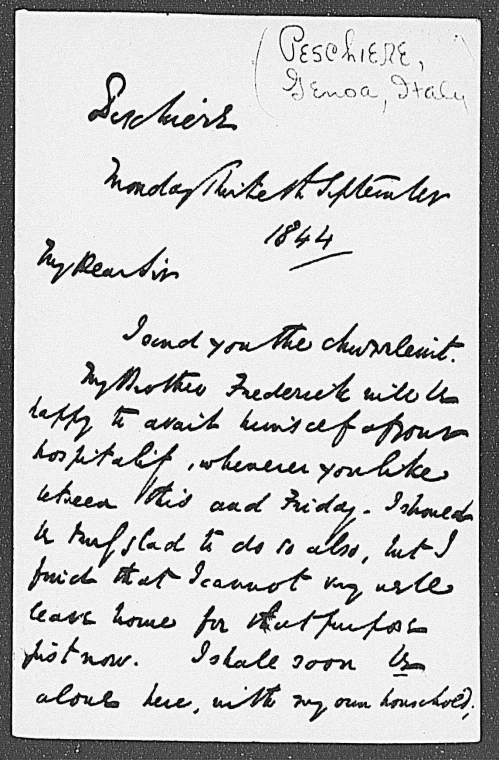 (PESCHIERE,
Genoa, Italy
Peschiere
Monday Thirtieth September
1844
My Dear Sir
I send you the
My Brother Frederick will be
happy to avail himself of your
hospitality, whenever you like
between this and Friday. I should
be very glad to do so also, but I
find that I cannot very well
leave home for that purpose
just now. I shall soon be
alone here, with my own household,